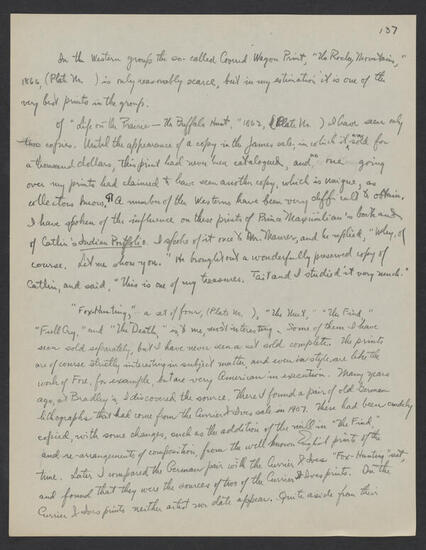 137
In the Western group the so-called Covered Wagon Print, "The Rocky Mountains,"
1866, (Plate No. ) is only reasonably scarce, but in my estimation it is one of the
very best prints in the group.
Of "Life on the Prairie – The Buffalo Hunt," 1862, (Plate No. ) I have seen only
two copies. Until the appearance of a copy in the James sale, in which it was sold for
a thousand dollars, this print had never been catalogued, and no one going
over my prints had claimed to have seen another copy, which is unique, as
collectors know. ¶ A number of the Westerns have been very difficult to obtain.
I have spoken of the influence on these prints of Prinz Maximilian's book and
of Catlin's Indian Portfolio. I spoke of it once to Mr. Maurer, and he replied, "Why, of
course. Let me show you." He brought out a wonderfully preserved copy of
Catlin, and said, "This is one of my treasures. Tait and I studied it very much."
"Fox-Hunting," a set of four, (Plate No. ), "The Meet," "The Find,"
"Full Cry," and "The Death," is to me, most interesting. Some of them I have
seen sold separately, but I have never seen a set sold complete. The prints
are of course strictly interesting in subject matter, and even in style, are like the
work of Fox, for example, but are very American in execution. Many years
ago, at Bradley's I discovered the source. There I found a pair of old German
lithographs that had come from the Currier & Ives sale in 1907. These had been crudely
copied, with some changes, such as the addition of the mill in "The Find,"
and re-arrangements of composition, from the well known English prints of the
time. Later I compared the German pair with the Currier & Ives "Fox-Hunting" set,
and found that they were the sources of two of the Currier & Ives prints. On the
Currier & Ives prints neither artist nor date appear. Quite aside from their